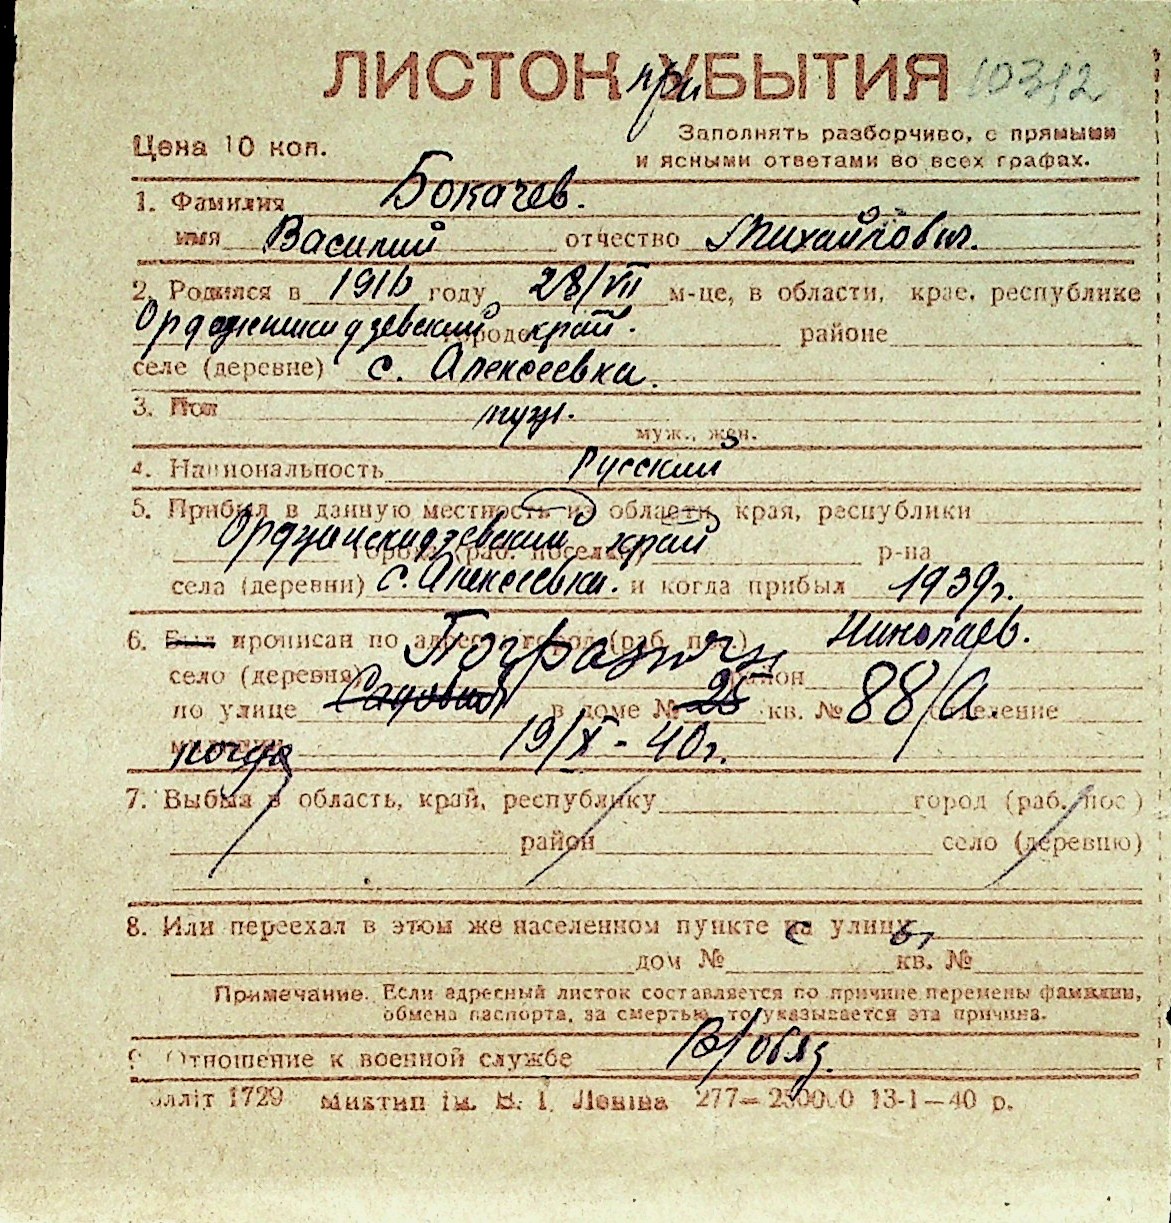 ЛИСТОК при УБЫТИЯ 10312
Цена 10 коп.
Заполнять разборчиво, с прямыми
и ясными ответами во всех графах.
1. Фамилия Бокачев.
имя Василий отчество Михайлович.
2. Родился в 1916 году 28/VII м-це, в области, крае, республике
Орджоникидзевский край. городе районе
селе (деревне) с. Алексеевка.
3. Пол муж.
муж., жен.
4. Национальность Русский
5. Прибыл в данную местность из области, края, республики
Орджоникидзевский край города (раб. поселка) р-на
села (деревни) с. Алексеевки. и когда прибыл 1939г.
6. Был прописан по адресу город (раб. пос.) Николаев.
село (деревня) район
по улице Садовая в доме № 26 кв. № 88/А. отделение
милиции когда 19/X - 40г.
7. Выбыл в область, край, республику город (раб. пос)
район село (деревню)
8. Или переехал в этом же населенном пункте на улицу
дом № кв. №
Примечание. Если адресный листок составляется по причине перемены фамилии,
обмена паспорта, за смертью, то указывается эта причина.
9 Отношение к военной службе В/обяз.
1729 Миктип ім. В. І. Леніна 277—250000 13-1—40 р.